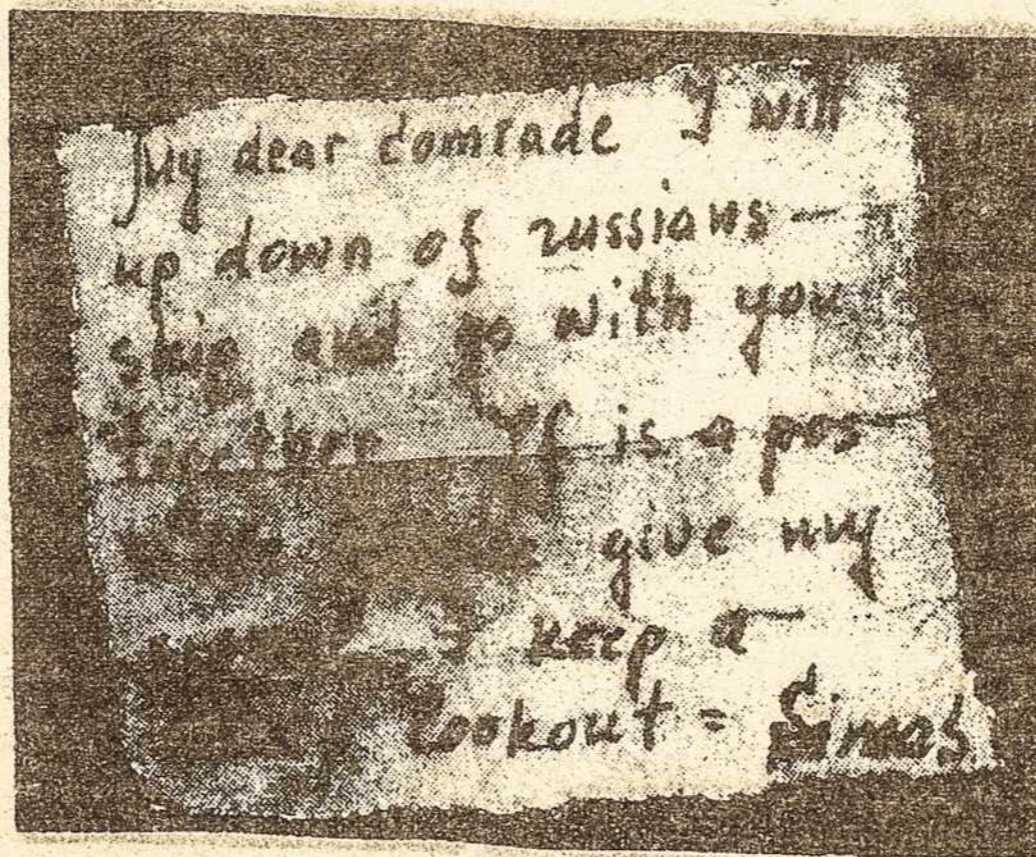 My dear comrade I will
up down of russians
ship and go with you
together If is a pos
give my
keep a
lookout = Simas